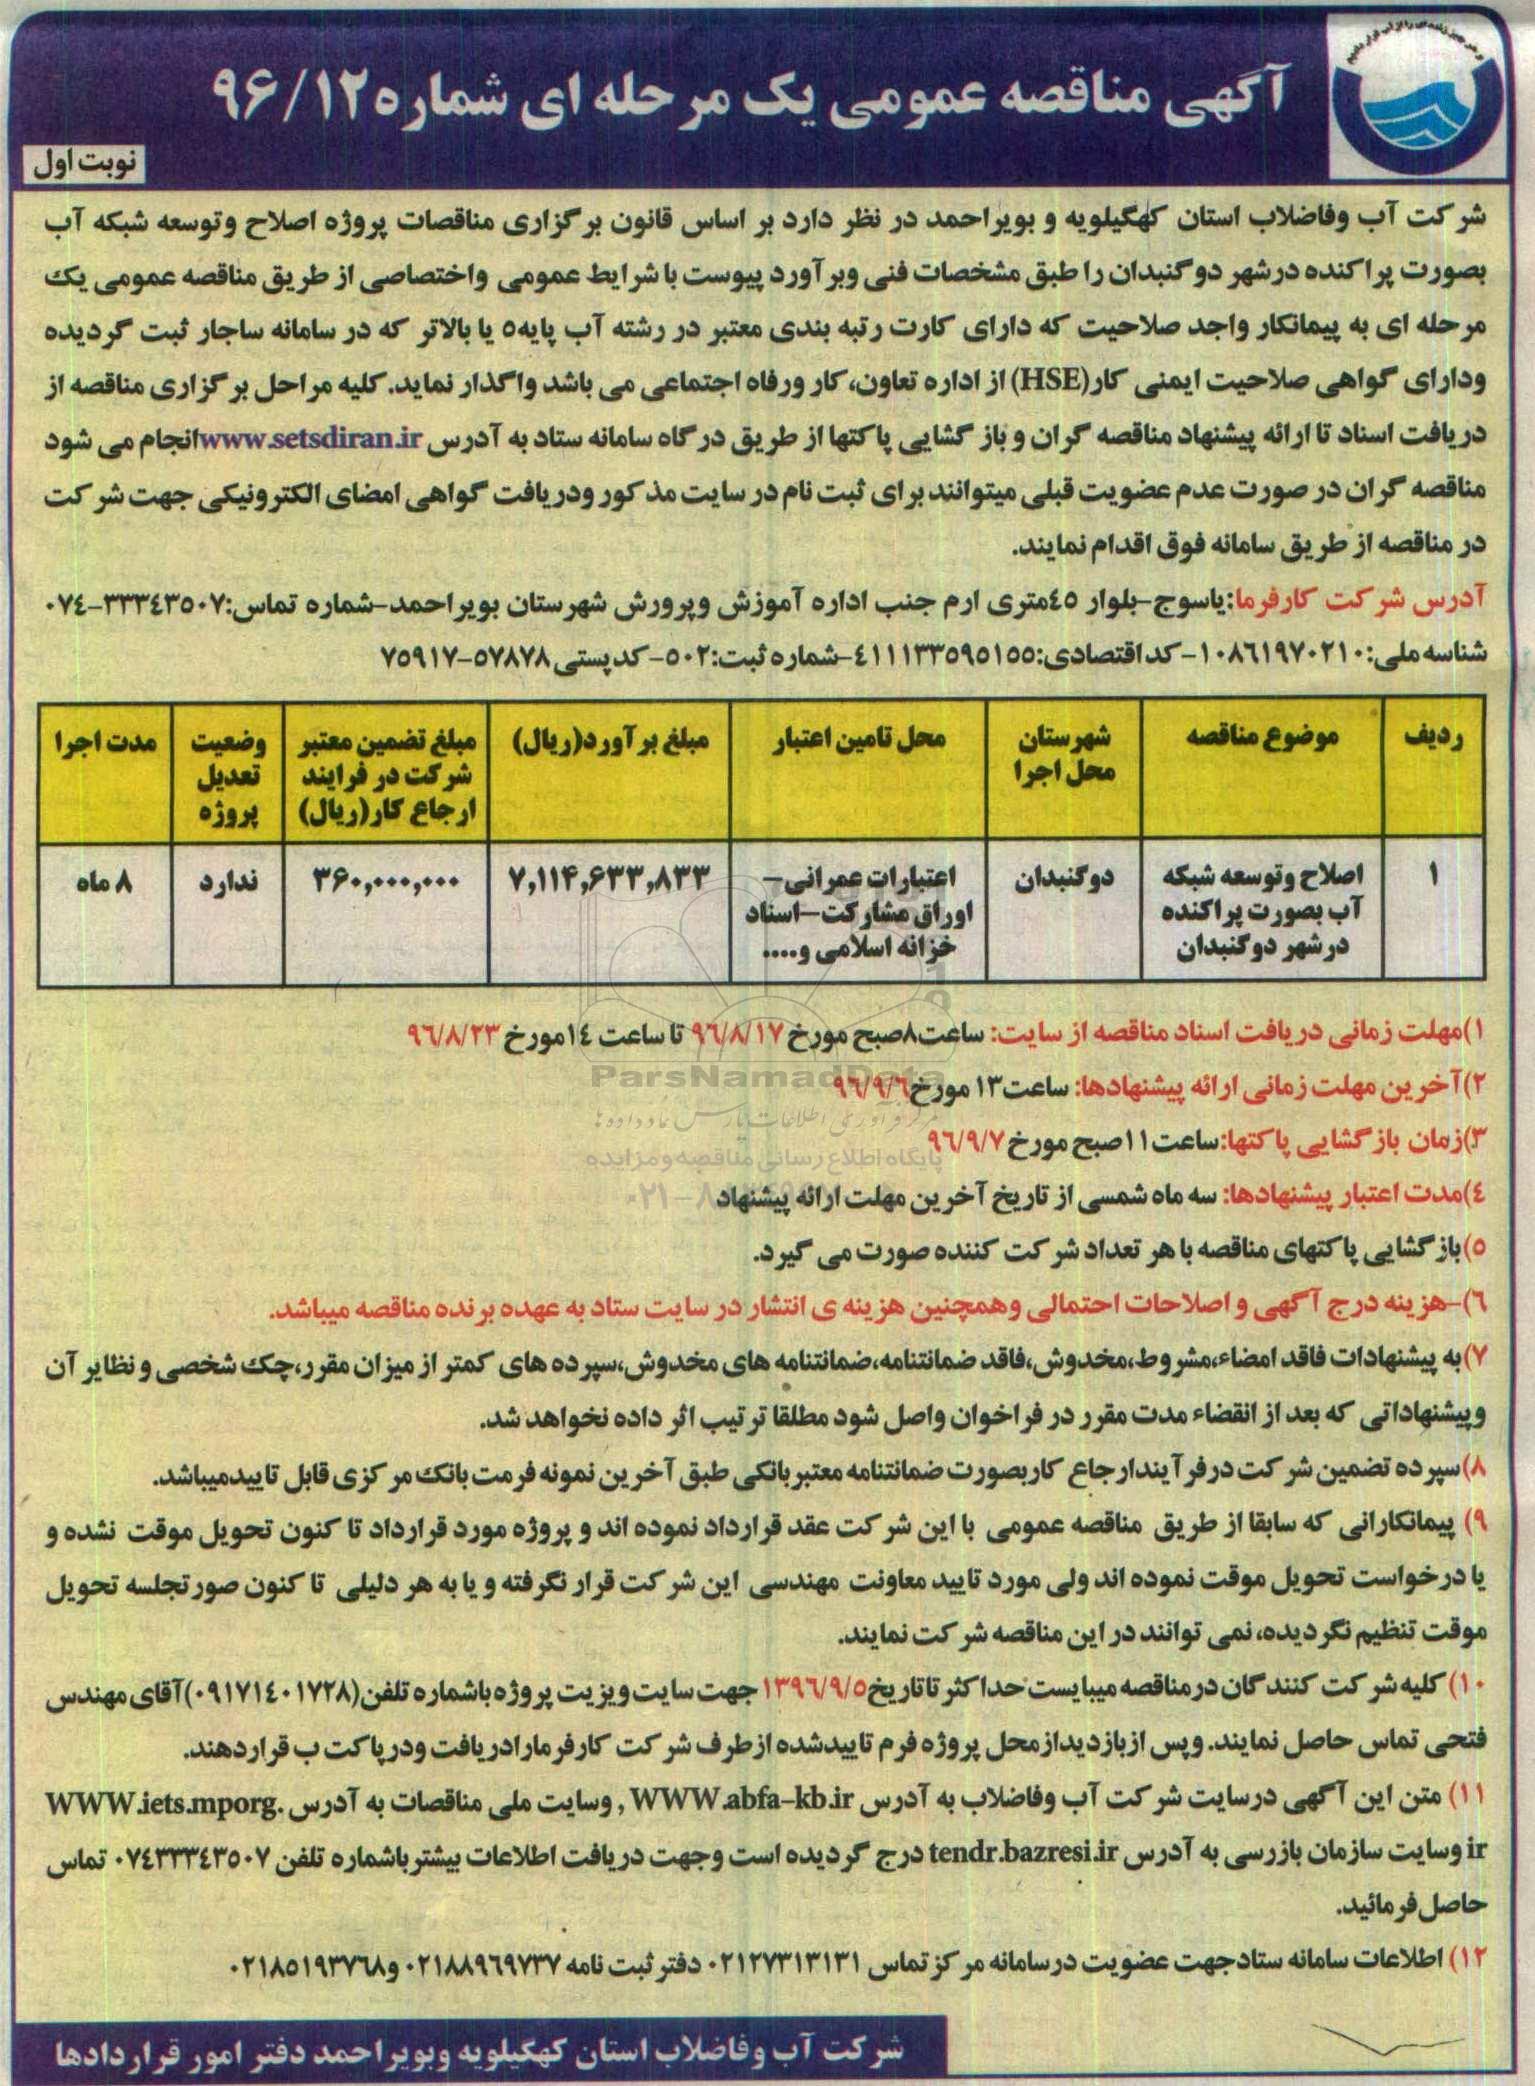 آگهی مناقصه عمومی یک مرحله ای شماره ۹۶/۱۲
نوبت اول
شرکت آب وفاضلاب استان کهگیلویه و بویراحمد در نظر دارد بر اساس قانون برگزاری مناقصات پروژه اصلاح وتوسعه شبکه آب
بصورت پراکنده درشهر دوگنبدان را طبق مشخصات فنی وبرآورد پیوست با شرایط عمومی واختصاصی از طریق مناقصه عمومی یک
مرحله ای به پیمانکار واجد صلاحیت که دارای کارت رتبه بندی معتبر در رشته آب پایه۵ یا بالاتر که در سامانه ساجار ثبت گردیده
ودارای گواهی صلاحیت ایمنی کار(HSE) از اداره تعاون،کار ورفاه اجتماعی می باشد واگذار نماید.کلیه مراحل برگزاری مناقصه از
دریافت اسناد تا ارائه پیشنهاد مناقصه گران و باز گشایی پاکتها از طریق درگاه سامانه ستاد به آدرس www.setsdiran.ir انجام می شود
مناقصه گران در صورت عدم عضویت قبلی میتوانند برای ثبت نام در سایت مذکور ودریافت گواهی امضای الکترونیکی جهت شرکت
در مناقصه از طریق سامانه فوق اقدام نمایند.
آدرس شرکت کارفرما:یاسوج-بلوار ۴۵متری ارم جنب اداره آموزش وپرورش شهرستان بویراحمد-شماره تماس:۳۳۳۴۳۵۰۷-۰۷۴
شناسه ملی:۱۰۸۶۱۹۷۰۲۱۰-کد اقتصادی:۴۱۱۱۳۳۵۹۵۱۵۵-شماره ثبت:۵۰۲-کدپستی ۵۷۸۷۸-۷۵۹۱۷
ردیف
موضوع مناقصه
شهرستان محل اجرا
محل تامین اعتبار
مبلغ برآورد(ریال)
مبلغ تضمین معتبر شرکت در فرایند ارجاع کار(ریال)
وضعیت تعدیل پروژه
مدت اجرا
۱
اصلاح وتوسعه شبکه آب بصورت پراکنده درشهر دوگنبدان
دوگنبدان
اعتبارات عمرانی- اوراق مشارکت-اسناد خزانه اسلامی و....
۷,۱۱۴,۶۳۳,۸۳۳
۳۶۰,۰۰۰,۰۰۰
ندارد
۸ ماه
۱)مهلت زمانی دریافت اسناد مناقصه از سایت: ساعت۸صبح مورخ ۹۶/۸/۱۷ تا ساعت ۱۴مورخ ۹۶/۸/۲۳
۲)آخرین مهلت زمانی ارائه پیشنهادها: ساعت۱۳ مورخ۹۶/۹/۶
۳)زمان بازگشایی پاکتها:ساعت۱۱صبح مورخ ۹۶/۹/۷
۴)مدت اعتبار پیشنهادها: سه ماه شمسی از تاریخ آخرین مهلت ارائه پیشنهاد
۵)بازگشایی پاکتهای مناقصه با هر تعداد شرکت کننده صورت می گیرد.
۶)-هزینه درج آگهی و اصلاحات احتمالی وهمچنین هزینه ی انتشار در سایت ستاد به عهده برنده مناقصه میباشد.
۷)به پیشنهادات فاقد امضاء،مشروط،مخدوش،فاقد ضمانتنامه،ضمانتنامه های مخدوش،سپرده های کمتر از میزان مقرر،چک شخصی و نظایر آن
وپیشنهاداتی که بعد از انقضاء مدت مقرر در فراخوان واصل شود مطلقا ترتیب اثر داده نخواهد شد.
۸)سپرده تضمین شرکت درفرآیندارجاع کاربصورت ضمانتنامه معتبربانکی طبق آخرین نمونه فرمت بانک مرکزی قابل تاییدمیباشد.
۹) پیمانکارانی که سابقا از طریق مناقصه عمومی با این شرکت عقد قرارداد نموده اند و پروژه مورد قرارداد تا کنون تحویل موقت نشده و
یا درخواست تحویل موقت نموده اند ولی مورد تایید معاونت مهندسی این شرکت قرار نگرفته و یا به هر دلیلی تا کنون صورتجلسه تحویل
موقت تنظیم نگردیده، نمی توانند در این مناقصه شرکت نمایند.
۱۰) کلیه شرکت کنندگان درمناقصه میبایست حداکثر تاتاریخ۱۳۹۶/۹/۵ جهت سایت ویزیت پروژه باشماره تلفن(۰۹۱۷۱۴۰۱۷۲۸)آقای مهندس
فتحی تماس حاصل نمایند. وپس ازبازدیدازمحل پروژه فرم تاییدشده ازطرف شرکت کارفرمارادریافت ودرپاکت ب قراردهند.
۱۱) متن این آگهی درسایت شرکت آب وفاضلاب به آدرس WWW.abfa-kb.ir , وسایت ملی مناقصات به آدرس WWW.iets.mporg.
ir وسایت سازمان بازرسی به آدرس tendr.bazresi.ir درج گردیده است وجهت دریافت اطلاعات بیشترباشماره تلفن ۰۷۴۳۳۳۴۳۵۰۷ تماس
حاصل فرمائید.
۱۲) اطلاعات سامانه ستادجهت عضویت درسامانه مرکزتماس ۰۲۱۲۷۳۱۳۱۳۱ دفتر ثبت نامه ۰۲۱۸۸۹۶۹۷۳۷ و۰۲۱۸۵۱۹۳۷۶۸
شرکت آب وفاضلاب استان کهگیلویه وبویراحمد دفتر امور قراردادها
ParsNamadData
پایگاه اطلاع رسانی مناقصه و مزایده